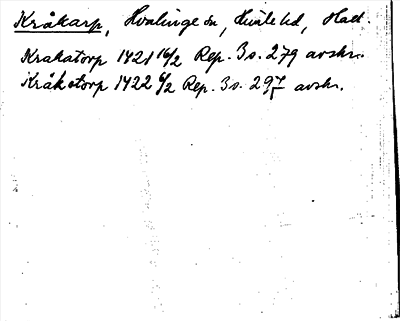 Kråkarp, Hvalinge sn, Himle hd, Hall.
Krakatorp 1421 16/2 Rep. 3 s. 279 avskr.
Kråketorp 1422 6/2 Rep. 3 s. 297 avskr.